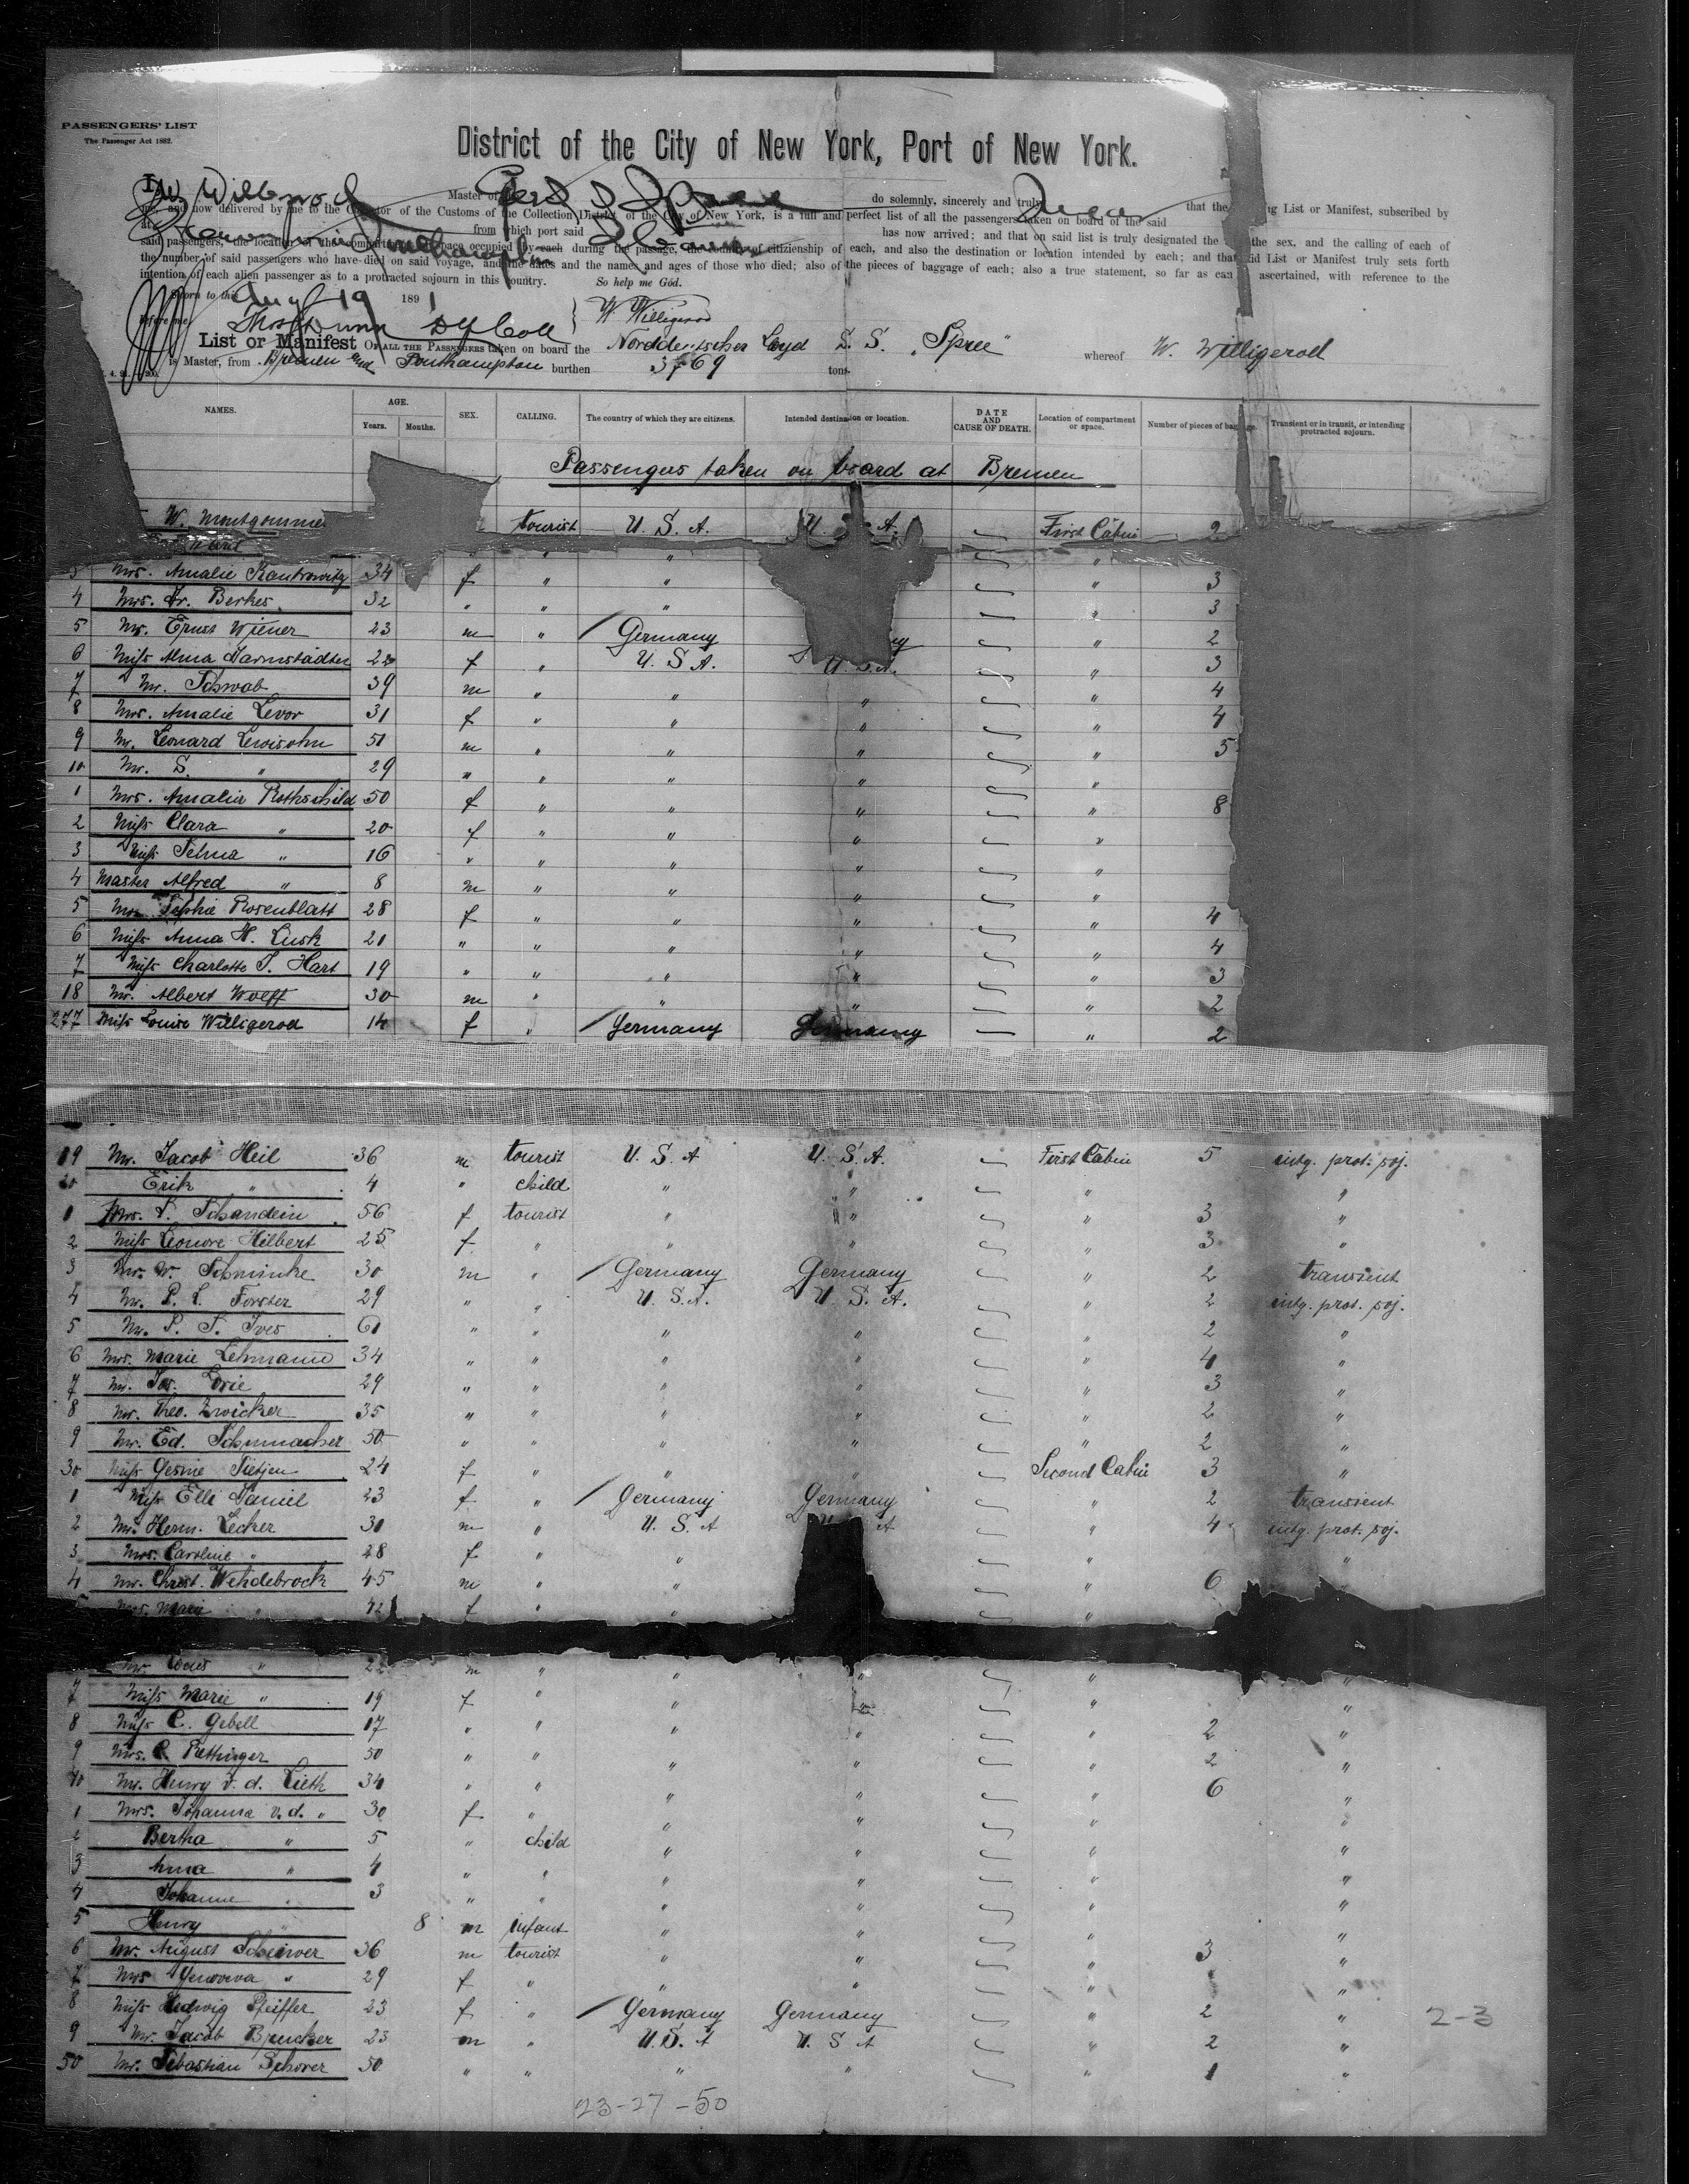 PASSENGERS' LIST
The Passenger Act 1882.
District of the City of New York, Port of New York.
I, W. Willigerod Master of do solemnly, sincerely and truly that the List or Manifest, subscribed by
and now delivered by me to the Collector of the Customs of the Collection District of the City of New York, is a full and perfect list of all the passengers taken on board of the said
at from which port said has now arrived; and that on said list is truly designated the the sex, and the calling of each of
said passengers, the location of the compartment space occupied by each during the passage, the country of citizenship of each, and also the destination or location intended by each; and that said List or Manifest truly sets forth
the number of said passengers who have died on said voyage, and the dates and the names and ages of those who died; also of the pieces of baggage of each; also a true statement, so far as can ascertained, with reference to the
intention of each alien passenger as to a protracted sojourn in this country. So help me God.
Sworn to this Aug 19 1891
before me W. Willigerod
List or Manifest OF ALL THE PASSENGERS taken on board the Norddeutscher Loyd S. S. „Spree" whereof W. Willigerod
is Master, from Bremen and Southampton burthen 3769 tons.
NAMES. AGE. Years. Months. SEX. CALLING. The country of which they are citizens. Intended destination or location. DATE AND CAUSE OF DEATH. Location of compartment or space. Number of pieces of baggage. Transient or in transit, or intending protracted sojourn.
Passengers taken on board at Bremen
W. Montgomme tourist U. S. A. U. S. A. First Cabin 2
3 Mrs. Amalie Kantrowitz 34 f " " " 3
4 Mrs. Fr. Berkes 32 " " " " 3
5 Mr. Ernst Wiener 23 m " Germany " 2
6 Miss Alma Darmstädter 22 f " U. S. A. U. S. A. " 3
7 Mr. Schwab 39 m " " " " 4
8 Mrs. Amalie Levor 31 f " " " " 4
9 Mr. Leonard Lewisohn 51 m " " " " 5
10 Mr. S. " 29 " " " " "
1 Mrs. Amalia Rothschild 50 f " " " " 8
2 Miss Clara " 20 f " " " "
3 Miss Selma " 16 " " " " "
4 Master Alfred " 8 m " " " "
5 Mrs Sophie Rosenblatt 28 f " " " " 4
6 Miss Anna H. Lusk 21 " " " " " 4
7 Miss Charlotte T. Hart 19 " " " " " 3
18 Mr. Albert Wolff 30 m " " " " 2
277 Miss Louise Willigerod 14 f " Germany Germany " 2
19 Mr. Jacob Heil 36 m tourist U. S. A U. S. A. First Cabin 5 intg. prot. soj.
20 Erik " 4 " child " " " "
1 Mrs. L. Schandein 56 f tourist " " " 3 "
2 Miss Leonore Hilbert 25 f " " " " 3 "
3 Mr. W. Schminke 30 m " Germany Germany " 2 transient
4 Mr. P. L. Forster 29 " " U. S. A. U. S. A. " 2 intg. prot. soj.
5 Mr. P. S. Ives 61 " " " " " 2 "
6 Mrs. Marie Lehmann 34 " " " " " 4 "
7 Mr. Jos. Lorie 29 " " " " " 3 "
8 Mr. Theo. Zwicker 35 " " " " " 2 "
9 Mr. Ed. Schumacher 50 " " " " " 2 "
30 Miss Gesine Tietjen 24 f " " " Second Cabin 3 "
1 Miss Elle Daniel 23 f " Germany Germany " 2 transient
2 Mr. Herm. Lecker 31 m " U. S. A A " 4 intg. prot. soj.
3 Mrs. Caroline " 28 f " " " "
4 Mr. Christ. Wehdebrock 45 m " " " 6
Mrs. Marie " 42 f " " "
Mr. " 22 m " " " " "
7 Miss Marie " 19 f " " " " "
8 Miss C. Gebell 17 " " " " " 2 "
9 Mrs. C. Rettinger 50 " " " " " 2 "
40 Mr. Henry v. d. Lieth 34 " " " " " 6 "
1 Mrs. Johanna v. d. " 30 f " " " " "
2 Bertha " 5 " child " " " "
3 Anna " 4 " " " " " "
4 Johanne " 3 " " " " " "
5 Henry " 8 m infant " " " "
6 Mr. August Scheiwer 36 m tourist " " " 3 "
7 Mrs Genoveva " 29 f " " " " "
8 Miss Hedwig Pfeiffer 23 f " Germany Germany " 2 "
2-3
9 Mr. Jacob Brucker 23 m " U. S. A U. S A " 2 "
50 Mr. Sebastian Schorer 50 " " " " " 1 "
23-27-50